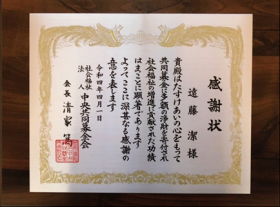 感謝状
遠藤 潔 様
貴殿はたすけあいの心をもって
共同募金に多額の浄財を寄付され
社会福祉の増進に貢献された功績
はまことに顕著であります
よってここに深甚なる感謝の
意を表します
令和四年四月一日
社会福祉法人 中央共同募金会
会長 清家 篤